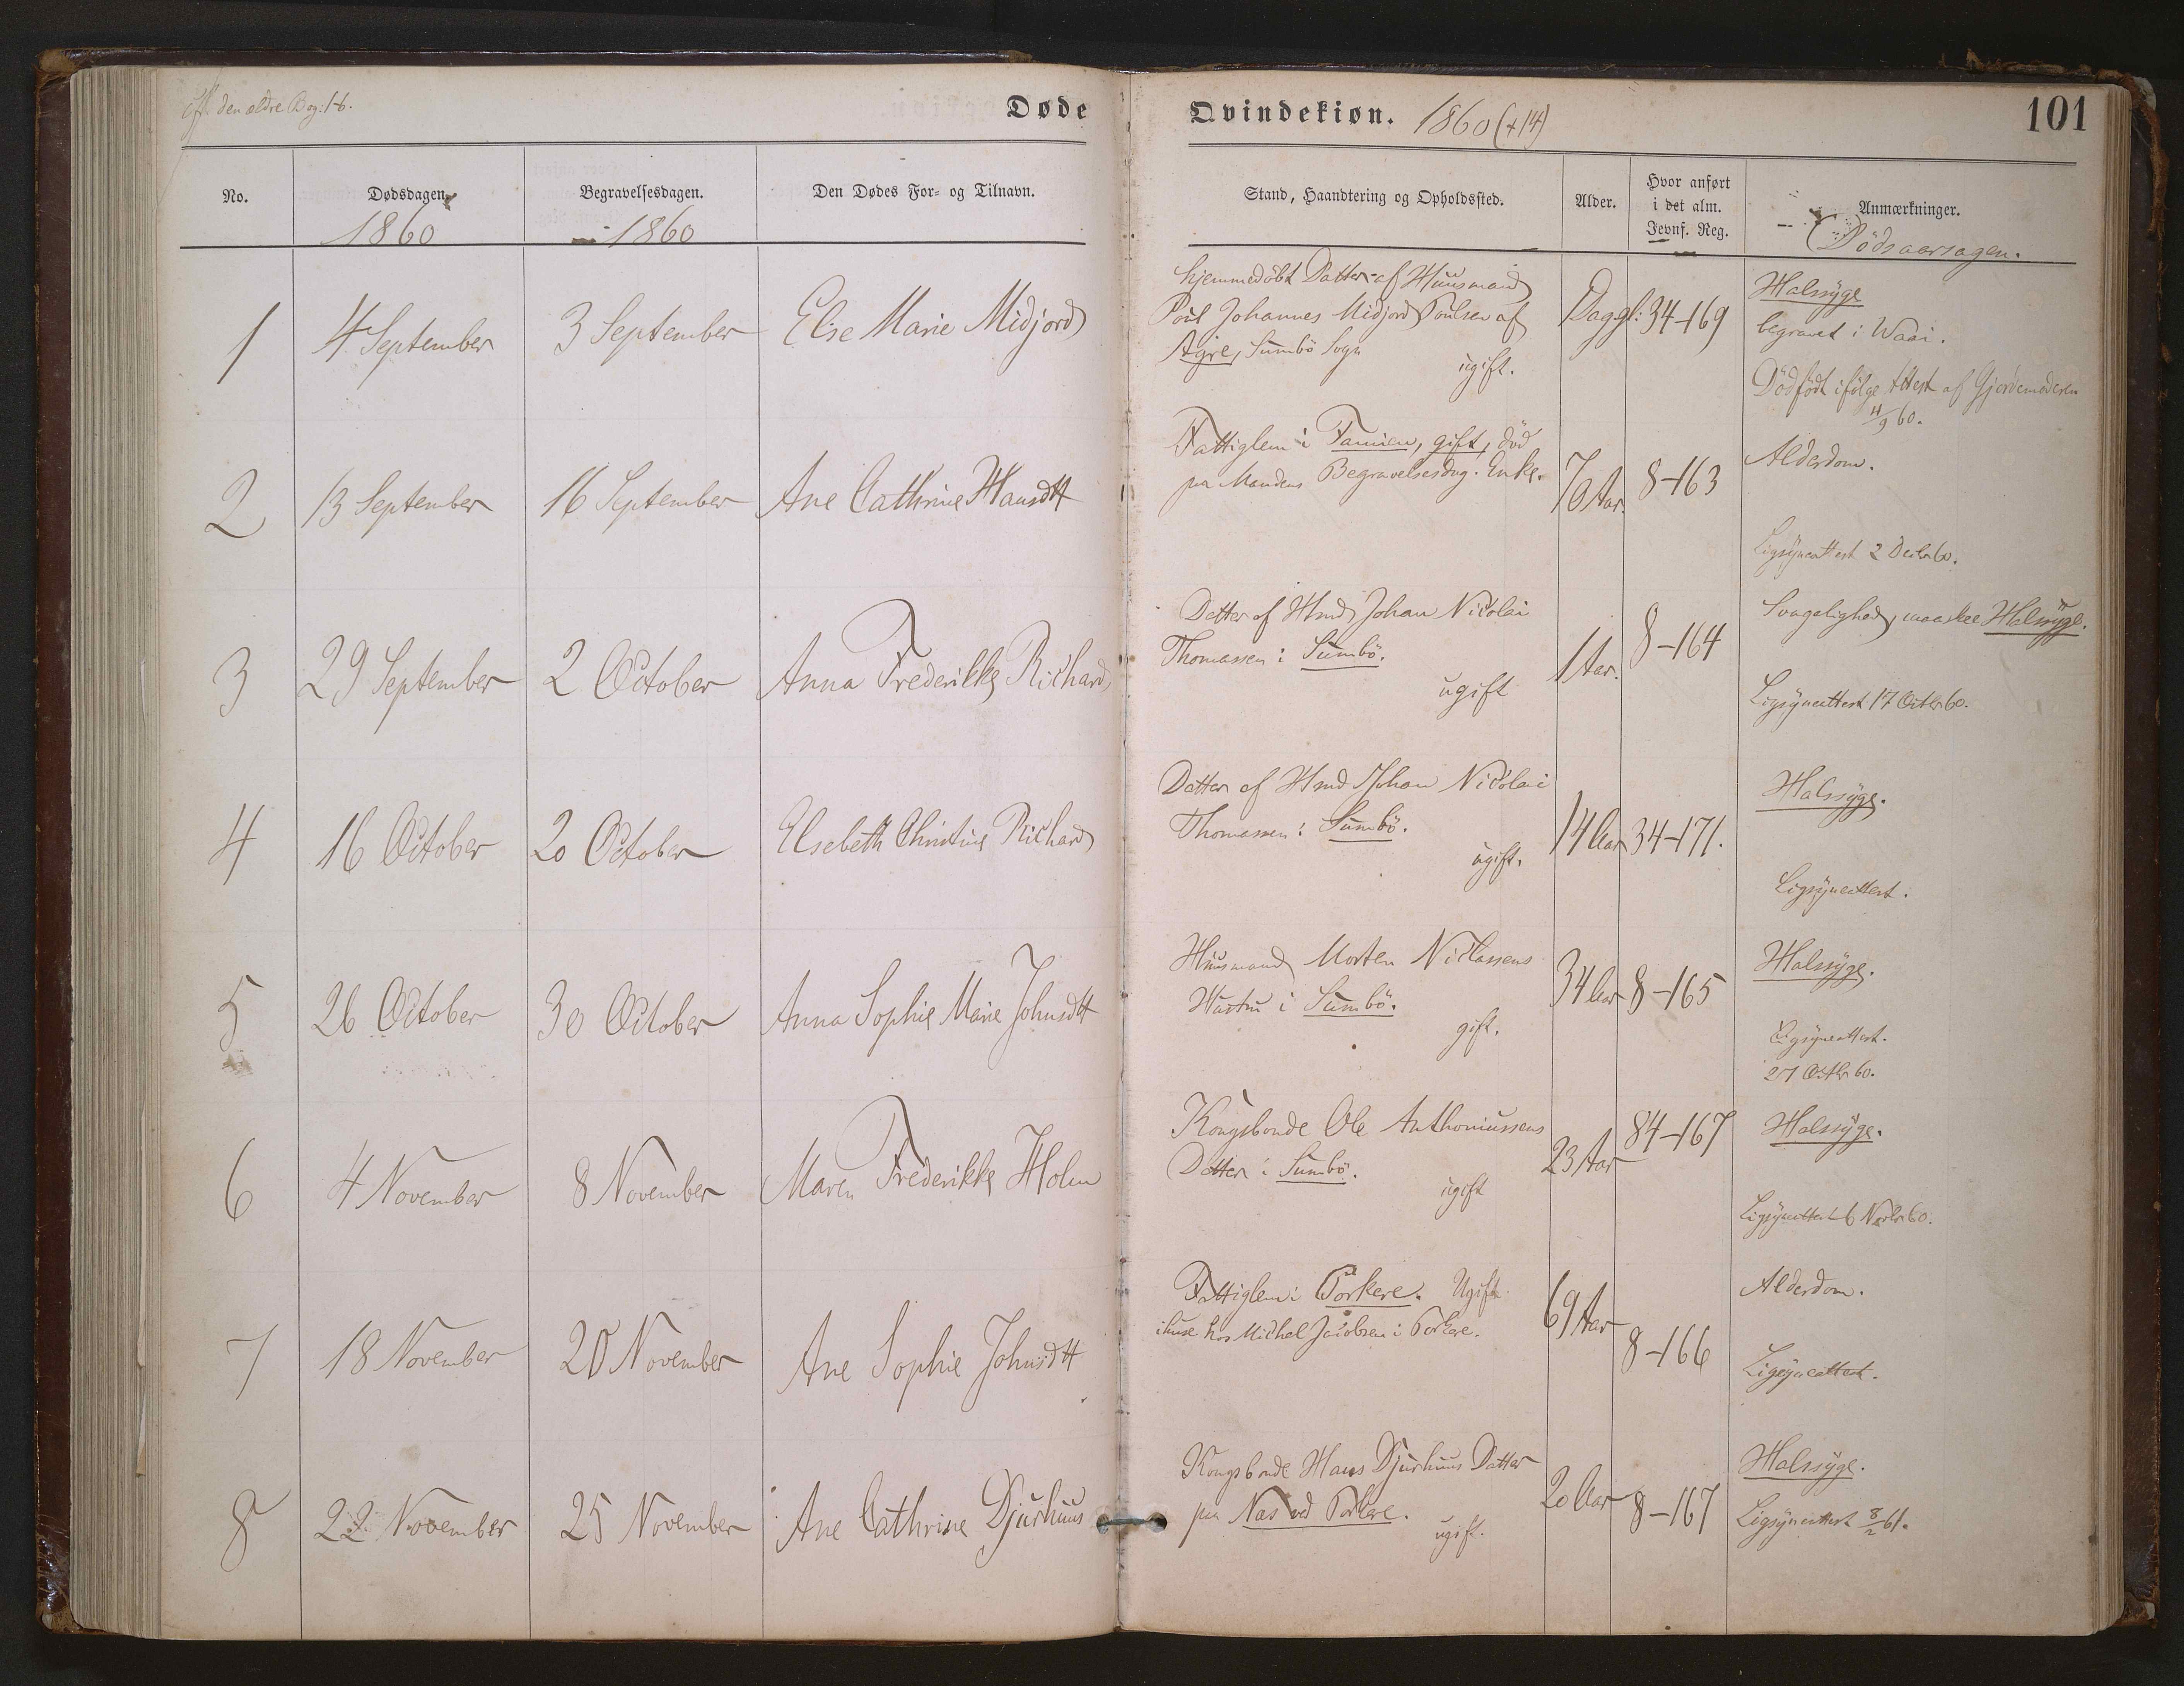 cfr. den ældre Bog: 1-6.
Døde
Qvindekiøn. 1860 (+14)
101
No.
Dødsdagen.
1860
Begravelsesdagen.
1860
Den Dødes For- og Tilnavn.
Stand, Haandtering og Opholdssted.
Alder.
Hvor anført
i det alm.
Jevnf. Reg.
Anmærkninger.
(Dödsaarsagen.
1
4 September
3 September
Else Marie Midjord
hjemmedöbt Datter af Huusmand
Poul Johannes Midjord Poulsen af
Agre, Sumbö Sogn
ugift.
Daggl:
34-169
Halssyge
begravet i Waai.
Dödfödt ifölge Attest af Gjordemoderen
11/9 60.
2
13 September
16 September
Ane Cathrine Hansdtt
Fattiglem i Famien, gift, död
paa Mandens Begravelsesdag. Enke.
70 Aar.
8-163
Alderdom.
Ligsynsattest 2 Decbr 60.
3
29 September
2 October
Anna Frederikke Richard
Datter af Hmd Johan Nicolai
Thomassen i Sumbö.
ugift
1 Aar.
8-164
Svagelighed, maaskee Halssyge.
Ligsynsattest 17 Octbr 60.
4
16 October
20 October
Elsebeth Christine Richard
Datter af Hmd Johan Nicolai
Thomassen i Sumbö.
ugift.
14 Aar
34-171.
Halssyge.
Ligsynsattest.
5
26 October
30 October
Anna Sophie Marie Johnsdtt
Huusmand Morten Niclassens
Hustru i Sumbö.
gift.
34 Aar
8-165
Halssyge.
Ligsynsattest.
27 Octbr 60.
6
4 November
8 November
Maren Frederikke Holm
Kongsbonde Ole Anthoniussens
Datter i Sumbö.
ugift
23 Aar
84-167
Halssyge.
Ligsynsattest 6 Novbr 60.
7
18 November
20 November
Ane Sophie Johnsdtt
Fattiglem i Porkere. Ugift.
ihuse hos Michel Jacobsen i Porkere.
69 Aar
8-166
Alderdom.
Ligsynsattest.
8
22 November
25 November
Ane Cathrine Djurhuus
Kongsbonde Hans Djurhuus Datter
paa Næs ved Porkere.
ugift.
20 Aar
8-167
Halssyge.
Ligsynsattest 8/2 61.